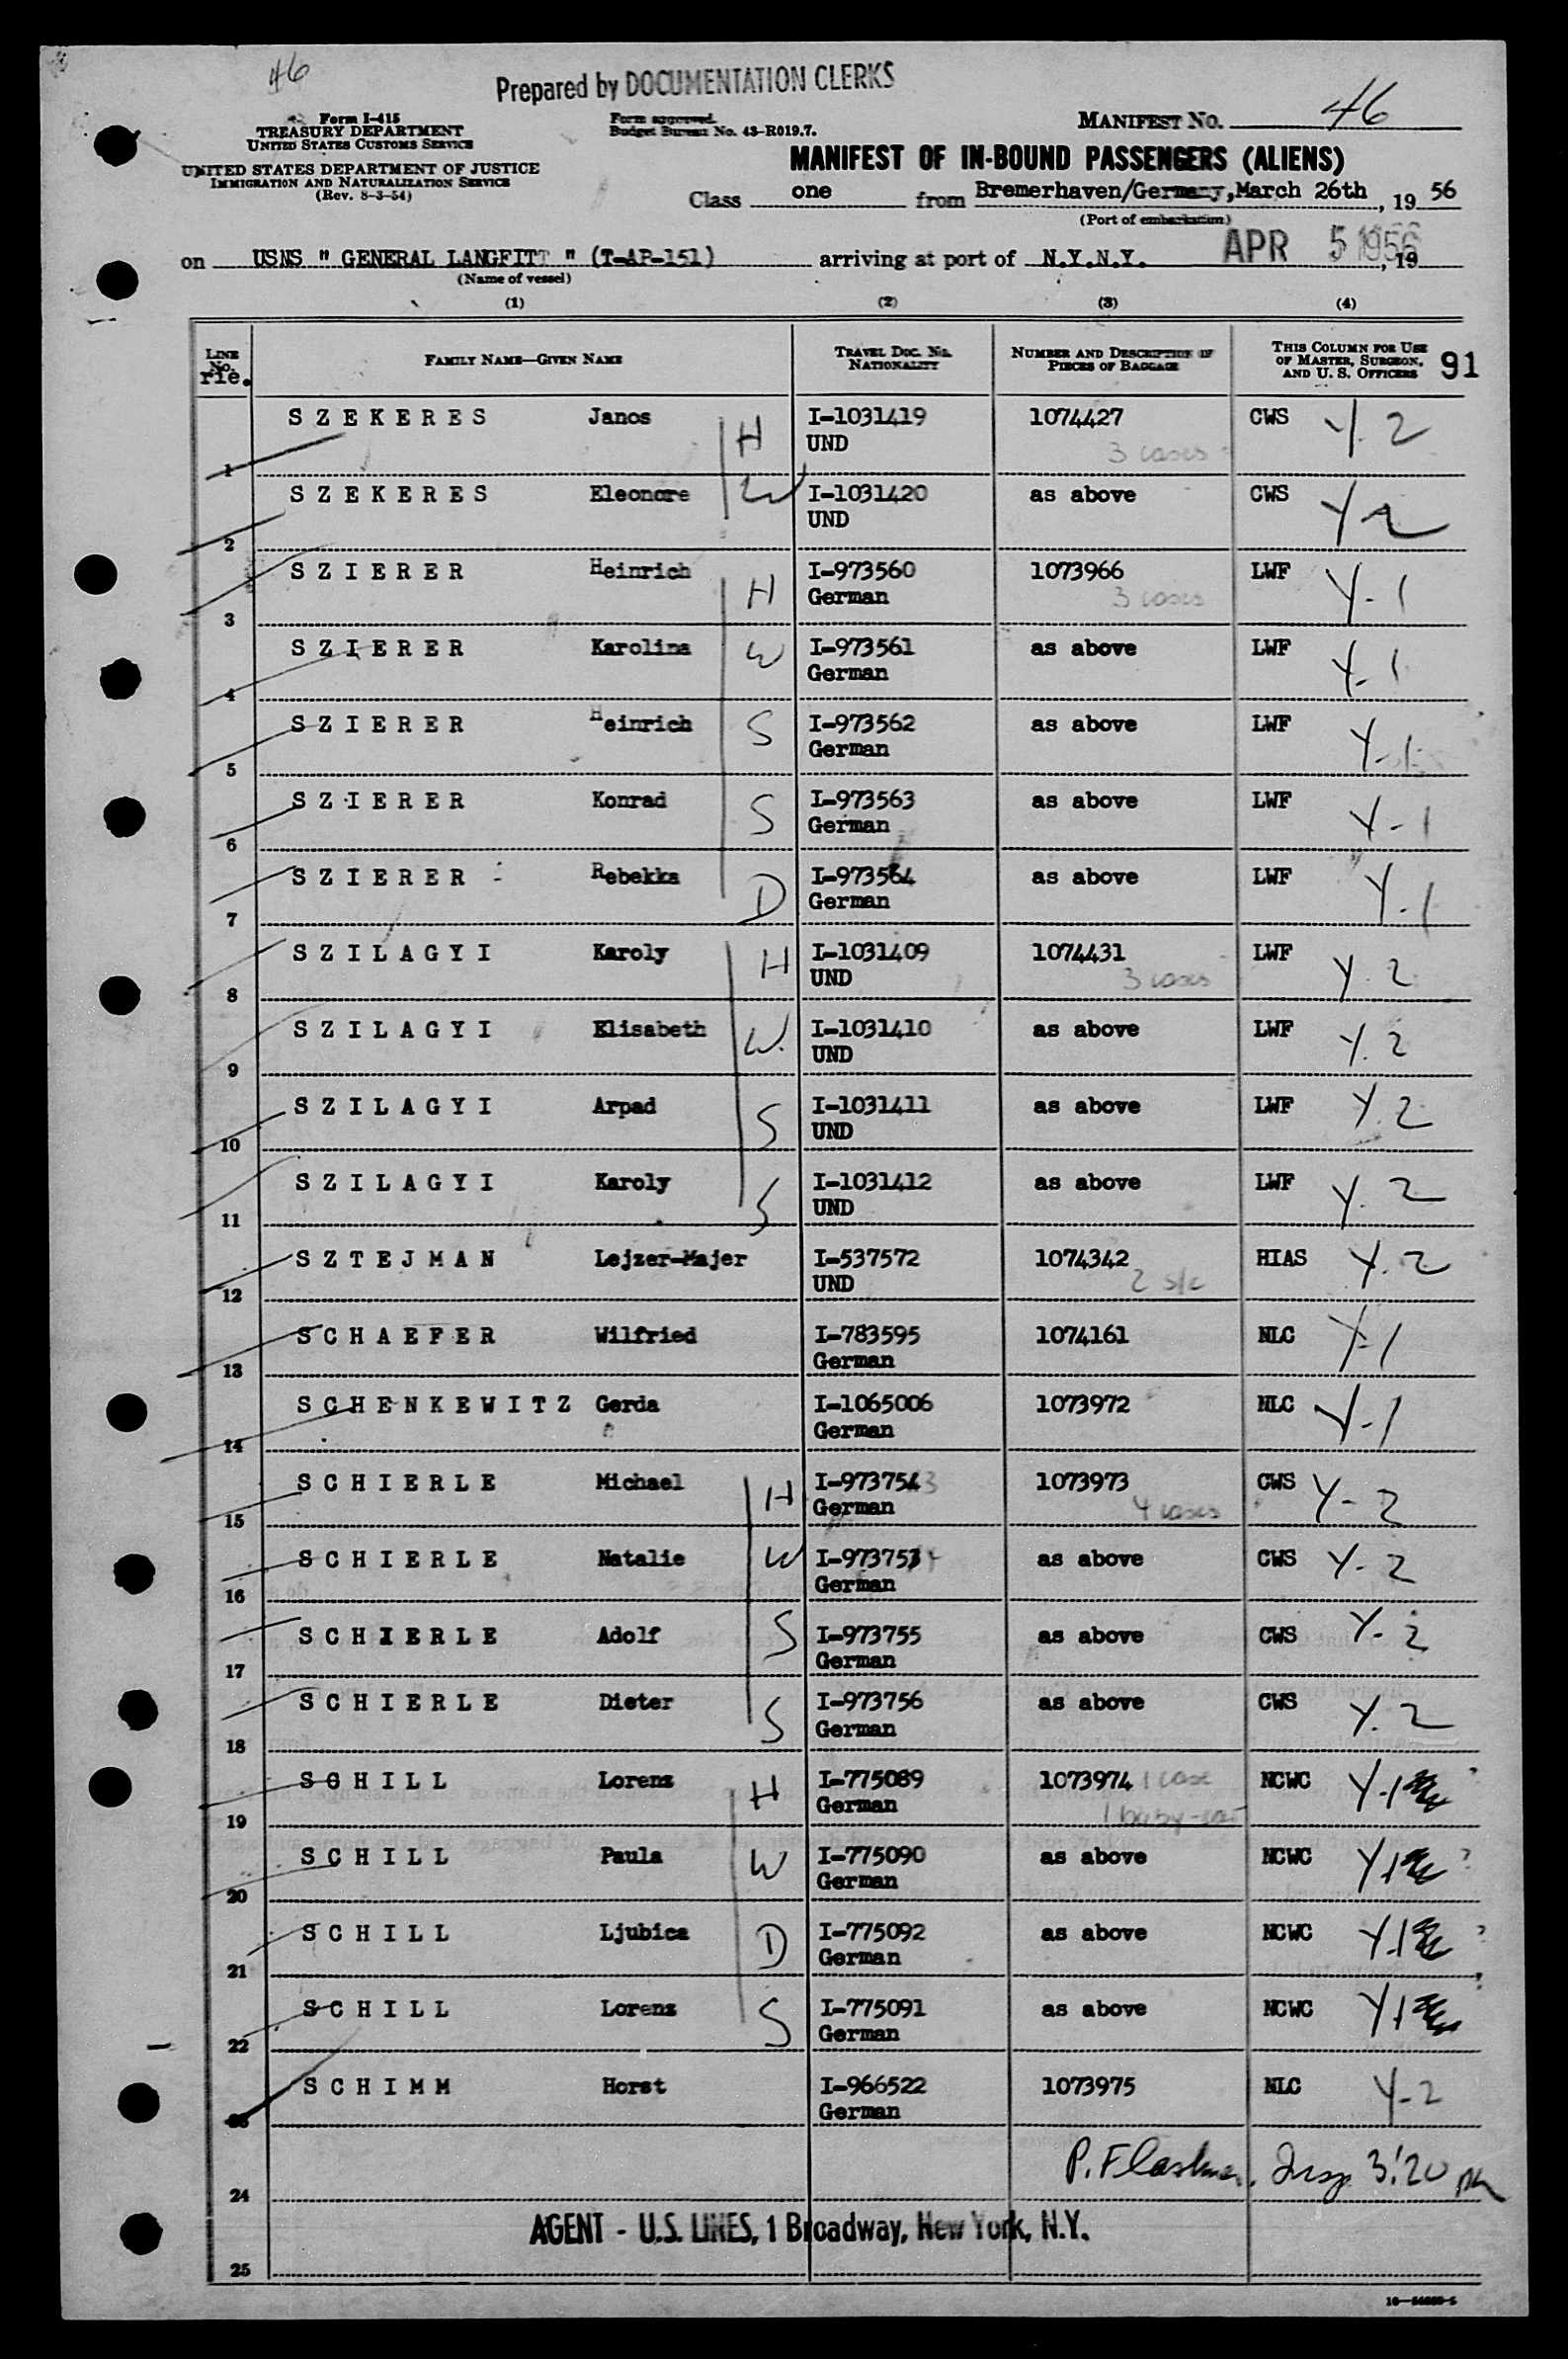 46
Prepared by DOCUMENTATION CLERKS
Form I-415
TREASURY DEPARTMENT
UNITED STATES CUSTOMS SERVICE
UNITED STATES DEPARTMENT OF JUSTICE
IMMIGRATION AND NATURALIZATION SERVICE
(Rev. 8-3-54)
Form approved.
Budget Bureau No. 43-R019.7.
MANIFEST NO. 46
MANIFEST OF IN-BOUND PASSENGERS (ALIENS)
Class one from Bremerhaven/Germany, March 26th, 19 56
(Port of embarkation)
on USNS " GENERAL LANGFITT " (T-AP-151) arriving at port of N.Y.N.Y. APR 5 1956, 19
(Name of vessel)
(1) (2) (3) (4)
LINE No. rle. FAMILY NAME—GIVEN NAME TRAVEL DOC. NO. NATIONALITY NUMBER AND DESCRIPTION OF PIECES OF BAGGAGE THIS COLUMN FOR USE OF MASTER, SURGEON, AND U. S. OFFICERS 91
1 SZEKERES Janos H I-1031419 UND 1074427 3 cases CWS Y. 2
2 SZEKERES Eleonore W I-1031420 UND as above CWS Y 2
3 SZIERER Heinrich H I-973560 German 1073966 3 cases LWF Y-1
4 SZIERER Karolina W I-973561 German as above LWF Y-1
5 SZIERER Heinrich S I-973562 German as above LWF Y-1
6 SZIERER Konrad S I-973563 German as above LWF Y-1
7 SZIERER Rebekka D I-973564 German as above LWF Y-1
8 SZILAGYI Karoly H I-1031409 UND 1074431 3 cases LWF Y. 2
9 SZILAGYI Elisabeth W. I-1031410 UND as above LWF Y. 2
10 SZILAGYI Arpad S I-1031411 UND as above LWF Y. 2
11 SZILAGYI Karoly S I-1031412 UND as above LWF Y. 2
12 SZTEJMAN Lejzer-Majer I-537572 UND 1074342 2 s/c HIAS Y. 2
13 SCHAEFER Wilfried I-783595 German 1074161 NLC Y-1
14 SCHENKEWITZ Gerda I-1065006 German 1073972 NLC Y-1
15 SCHIERLE Michael H I-9737543 German 1073973 4 cases CWS Y-2
16 SCHIERLE Natalie W I-9737534 German as above CWS Y-2
17 SCHIERLE Adolf S I-973755 German as above CWS Y-2
18 SCHIERLE Dieter S I-973756 German as above CWS Y. 2
19 SCHILL Lorenz H I-775089 German 1073974 1 case 1 baby- NCWC Y-1 ?
20 SCHILL Paula W I-775090 German as above NCWC Y-1 ?
21 SCHILL Ljubica D I-775092 German as above NCWC Y-1 ?
22 SCHILL Lorenz S I-775091 German as above NCWC Y-1 ?
23 SCHIMM Horst I-966522 German 1073975 NLC Y-2
24 P. Insp 3:20 pm
AGENT - U.S. LINES, 1 Broadway, New York, N.Y.
25